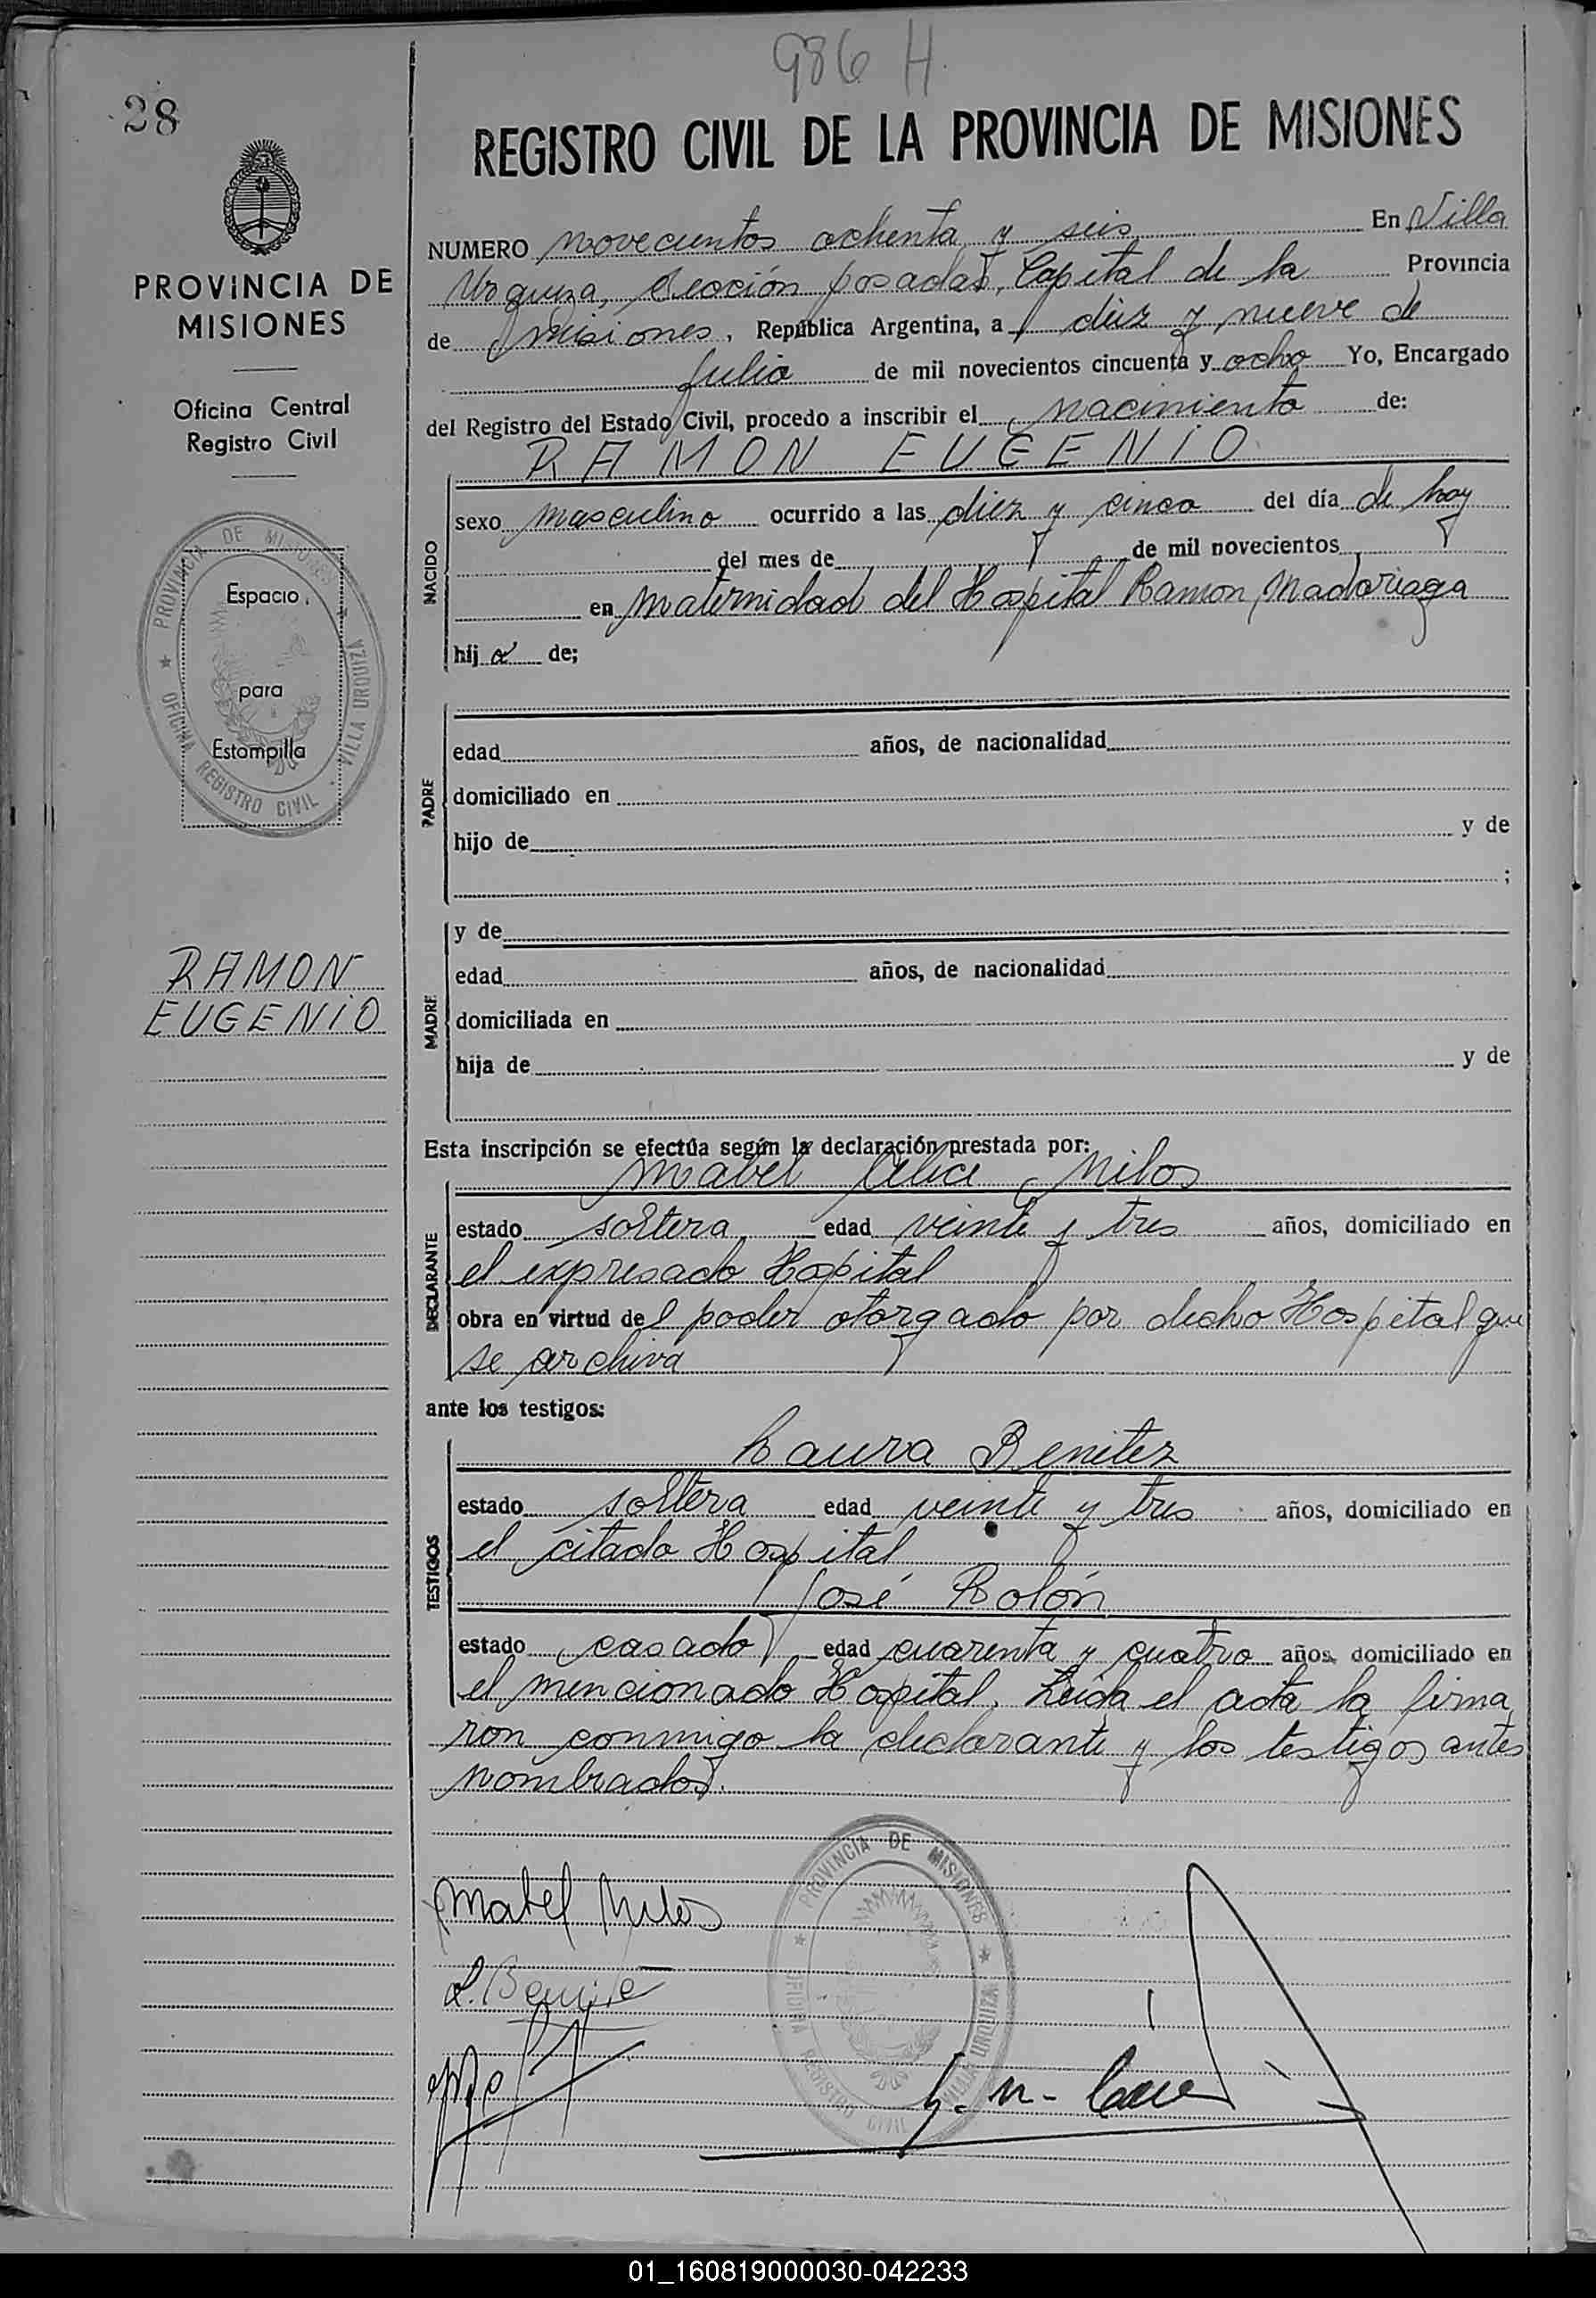 986 H
28
REGISTRO CIVIL DE LA PROVINCIA DE MISIONES
PROVINCIA DE
MISIONES
Oficina Central
Registro Civil
PROVINCIA DE MISIONES
Espacio
para
Estampilla
OFICINA REGISTRO CIVIL VILLA URQUIZA
RAMON
EUGENIO
NUMERO novecientos ochenta y seis En Villa
Urquiza, Sección posadas, Capital de la Provincia
de misiones, República Argentina, a diez y nueve de
julio de mil novecientos cincuenta y ocho Yo, Encargado
del Registro del Estado Civil, procedo a inscribir el nacimiento de:
RAMON EUGENIO
NACIDO
sexo masculino ocurrido a las diez y cinco del día de hoy
del mes de de mil novecientos
en maternidad del Hospital Ramon Madariaga
hij o de;
PADRE
edad años, de nacionalidad
domiciliado en
hijo de y de
;
MADRE
y de
edad años, de nacionalidad
domiciliada en
hija de y de
Esta inscripción se efectúa según la declaración prestada por:
mabel Milos
DECLARANTE
estado soltera edad veinte y tres años, domiciliado en
el expresado Hospital
obra en virtud del poder otorgado por dicho Hospital que
se archiva
ante los testigos:
Laura Benitez
TESTIGOS
estado soltera edad veinte y tres años, domiciliado en
el citado Hospital
José Rolón
estado casado edad cuarenta y cuatro años, domiciliado en
el mencionado Hospital. Leída el acta la firma
ron conmigo la declarante y los testigos antes
nombrados.
PROVINCIA DE MISIONES
OFICINA REGISTRO CIVIL VILLA URQUIZA
Mabel Milos
L. Benite
01_160819000030-042233